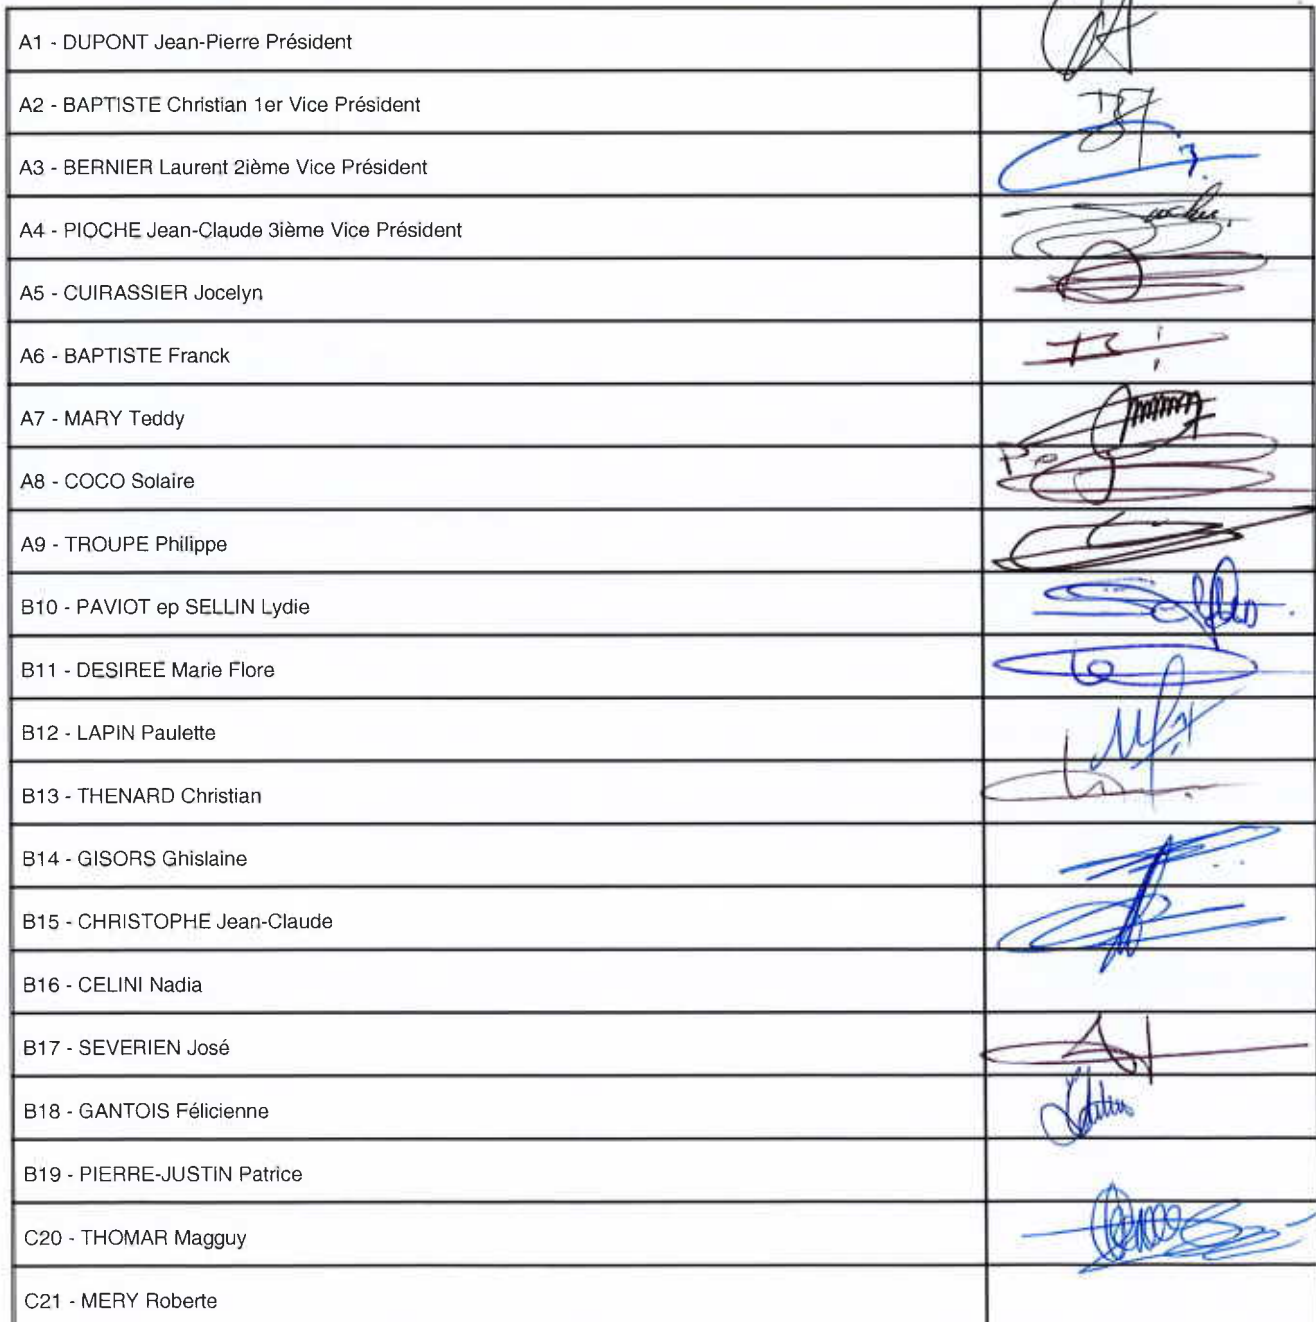 A1 - DUPONT Jean-Pierre Président
A2 - BAPTISTE Christian 1er Vice Président
A3 - BERNIER Laurent 2ième Vice Président
A4 - PIOCHE Jean-Claude 3ième Vice Président
A5 - CUIRASSIER Jocelyn
A6 - BAPTISTE Franck
A7 - MARY Teddy
A8 - COCO Solaire
A9 - TROUPE Philippe
B10 - PAVIOT ep SELLIN Lydie
B11 - DESIREE Marie Flore
B12 - LAPIN Paulette
B13 - THENARD Christian
B14 - GISORS Ghislaine
B15 - CHRISTOPHE Jean-Claude
B16 - CELINI Nadia
B17 - SEVERIEN José
B18 - GANTOIS Félicienne
B19 - PIERRE-JUSTIN Patrice
C20 - THOMAR Magguy
C21 - MERY Roberte